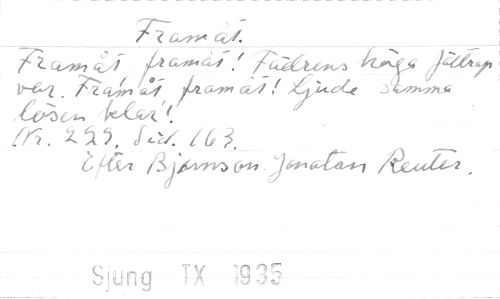 Framåt.
Framåt framåt! Fädrens höga fältrop
var. Framåt framåt! Ljude samma
lösen klar!
Nr. 299. Sid. 163.
Efter Bjørnson Jonatan Reuter.
Sjung TX 1935